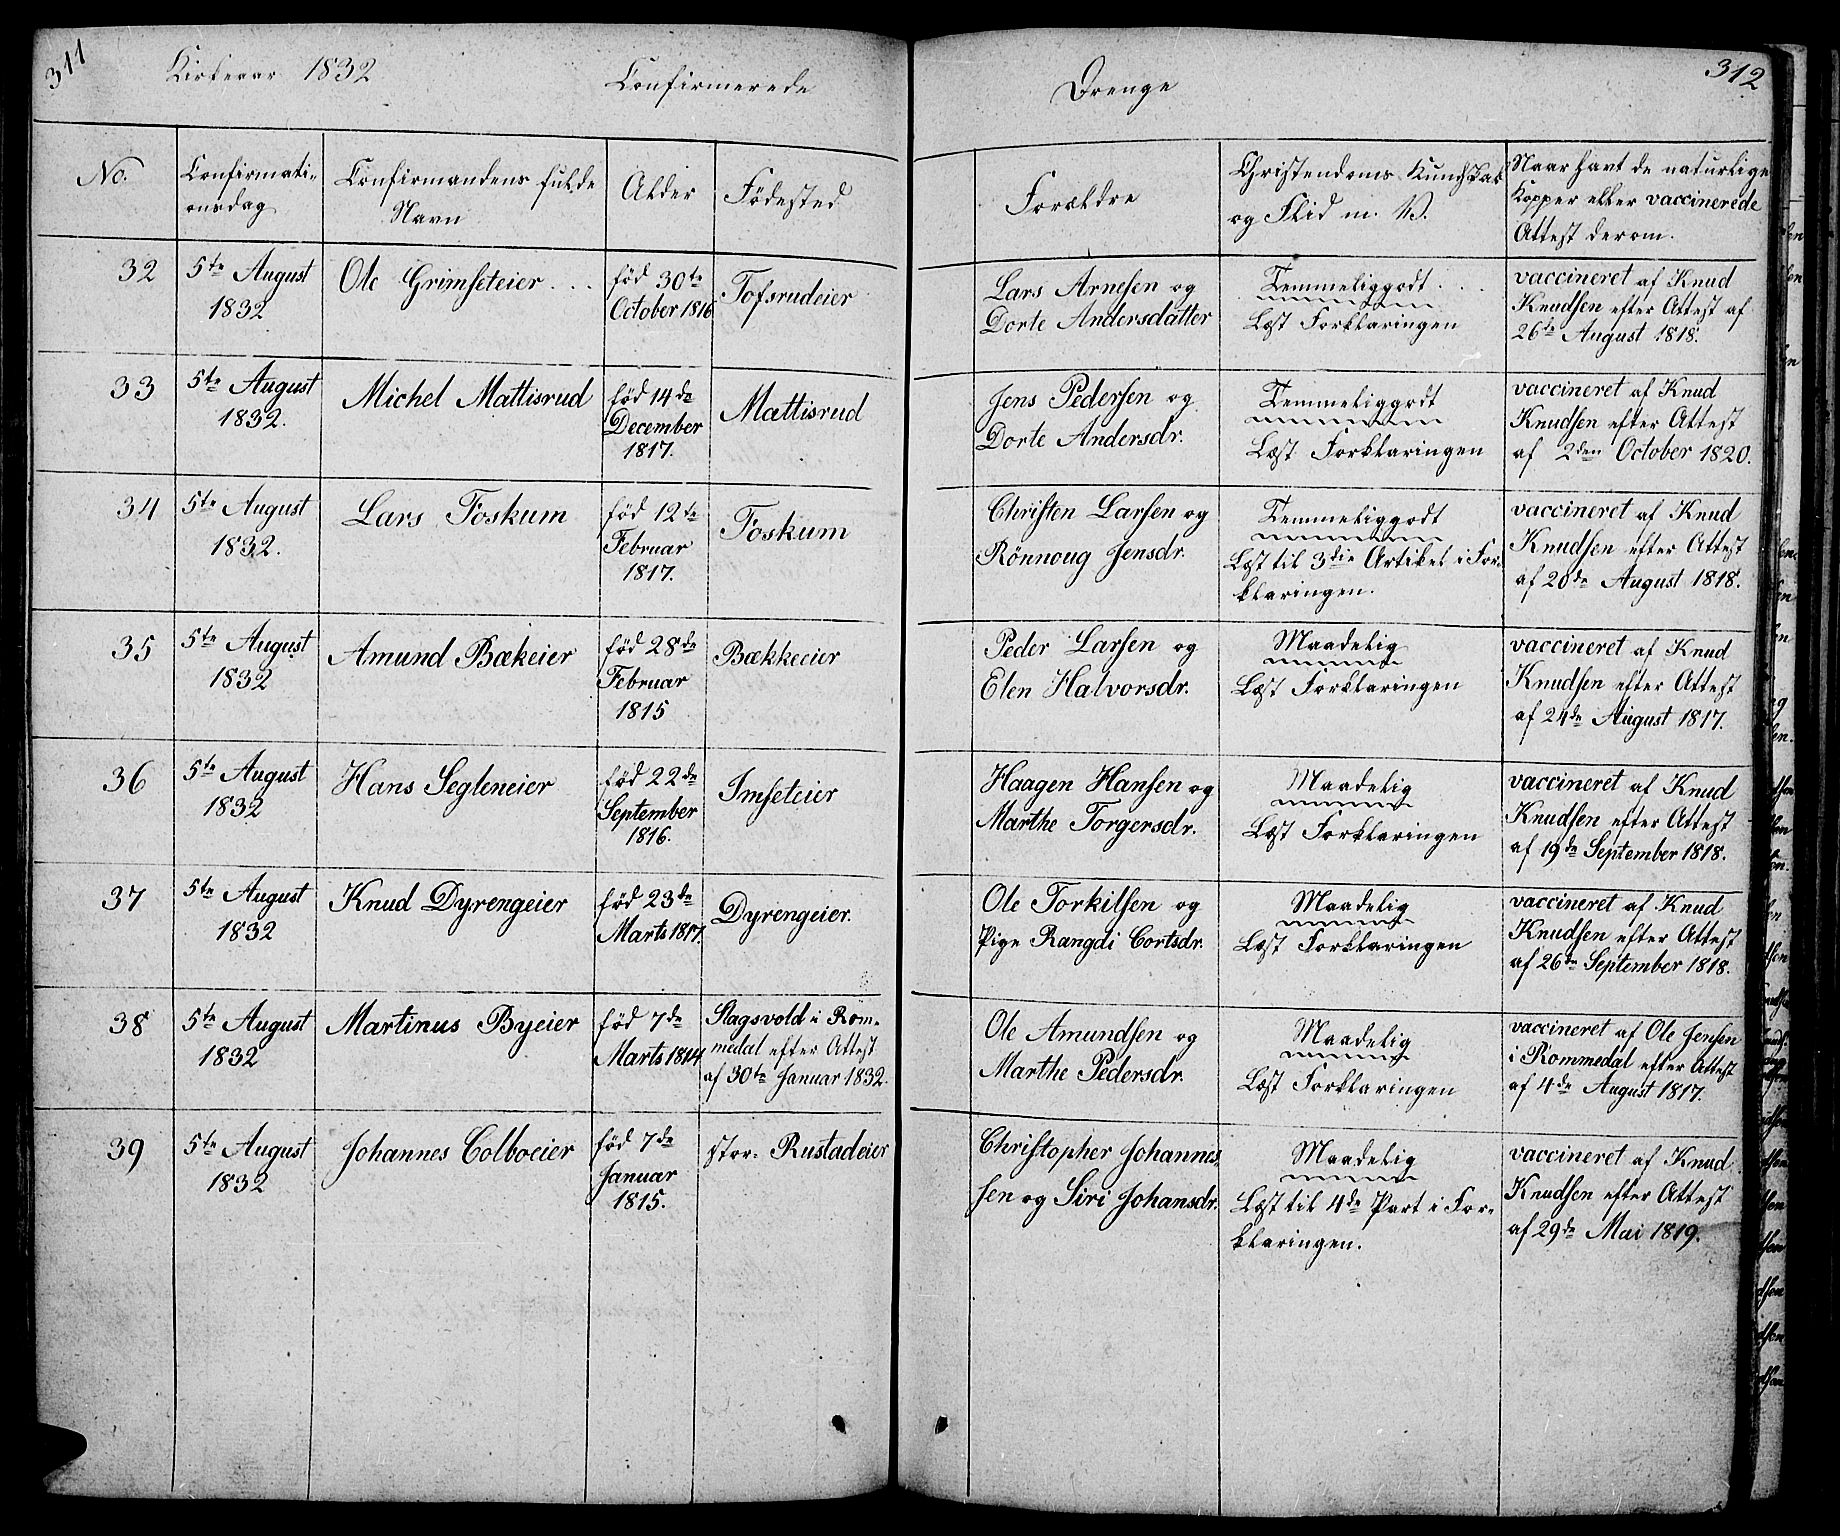 311
Kirkeaar 1832
Confirmerede
Drenge
312
No.
Confirmati-
onsdag
Confirmandens fulde
Navn
Alder
Födested
Forældre
Christendoms Kundskab
og Flid m. V.
Naar havt de naturlige
Kopper eller vaccinerede
Attest derom.
32
5te August
1832
Ole Grimseteier . . .
föd 30te
October 1816
Tofsrudeier
Lars Arnesen og
Dorte Andersdatter
Temmeliggodt . . .
Læst Forklaringen
vaccineret af Knud
Knudsen efter Attest af
26de August 1818.
33
5te August
1832.
Michel Mattisrud
föd 14de
December
1817.
Mattisrud
Jens Pedersen og
Dorte Andersdr.
Temmeliggodt
Læst Forklaringen
vaccineret af Knud
Knudsen efter Attest
af 2den October 1820.
34
5te August
1832.
Lars Foskum
föd 12te
Februar
1817.
Foskum
Christen Larsen og
Rönnoug Jensdr.
Temmeliggodt
Læst til 3die Artikel i For-
klaringen.
vaccineret af Knud
Knudsen efter Attest
af 20de August 1818.
35
5te August
1832
Amund Bækeier
föd 28de
Februar
1815
Bækkeeier
Peder Larsen og
Elen Halvorsdr.
Maadelig
Læst Forklaringen
vaccineret af Knud
Knudsen efter Attest
af 24de August 1817.
36
5te August
1832
Hans Segleneier
föd 22de
September
1816.
Imseteier
Haagen Hansen og
Marthe Torgersdr.
Maadelig
Læst Forklaringen
vaccineret af Knud
Knudsen efter Attest
af 19de September 1818.
37
5te August
1832
Knud Dyrengeier
föd 23de
Marts 1817.
Dyrengeier.
Ole Torkilsen og
Pige Rangdi Cortsdr.
Maadelig
Læst Forklaringen
vaccineret af Knud
Knudsen efter Attest
af 26de September 1818.
38
5te August
1832
Martinus Byeier
föd 7de
Marts 1814
Slagsvold i Rom-
medal efter Attest
af 30te Januar 1832.
Ole Amundsen og
Marthe Pedersdr.
Maadelig
Læst Forklaringen
vaccineret af Ole Jensen
i Rommedal efter Attest
af 4de August 1817.
39
5te August
1832
Johannes Colboeier
föd 7de
Januar
1815.
stor- Rustadeier
Christopher Johannes
sen og Siri Johansdr.
Maadelig
Læst til 4de Part i For-
klaringen.
vaccineret af Knud
Knudsen efter Attest
af 29de Mai 1819.